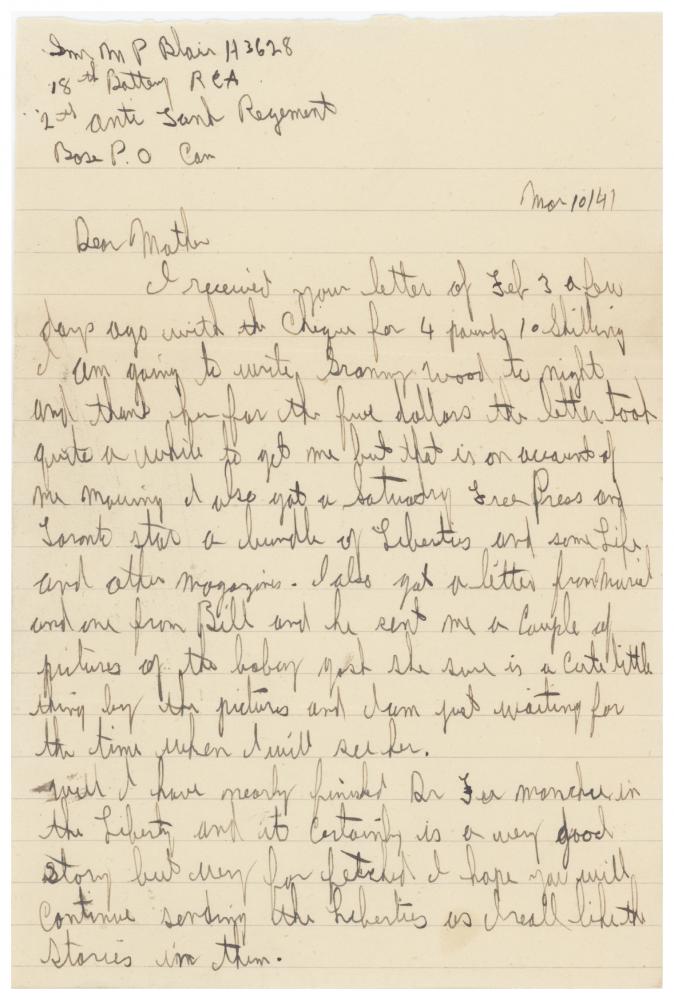 Gnr M P Blair H3628
18th Battery RCA
2nd Anti Tank Regement
Base P.O Can
Mar 10/41
Dear Mother
I received your letter of Feb 3 a few
days ago with the Cheque for 4 pounds 10 Shilling
I am going to write Granny Wood to night
and thank her for the five dollars the letter took
quite a while to get me but that is on account of
me moving I also got a Satuadry Free Press and
Toronto star a bundle of Liberties and some Life
and other magazines. I also got a letter from Muriel
and one from Bill and he sent me a Couple of
pictures of the babay gosh she sure is a Cute little
thing by the pictures and I am just waiting for
the time when I will see her.
well I have nearly finished Dr Fu manchu in
the Liberty and it Certainly is a very good
story but very far fetched I hope you will
Continue sending the Liberties as I reall like the
stories in them.